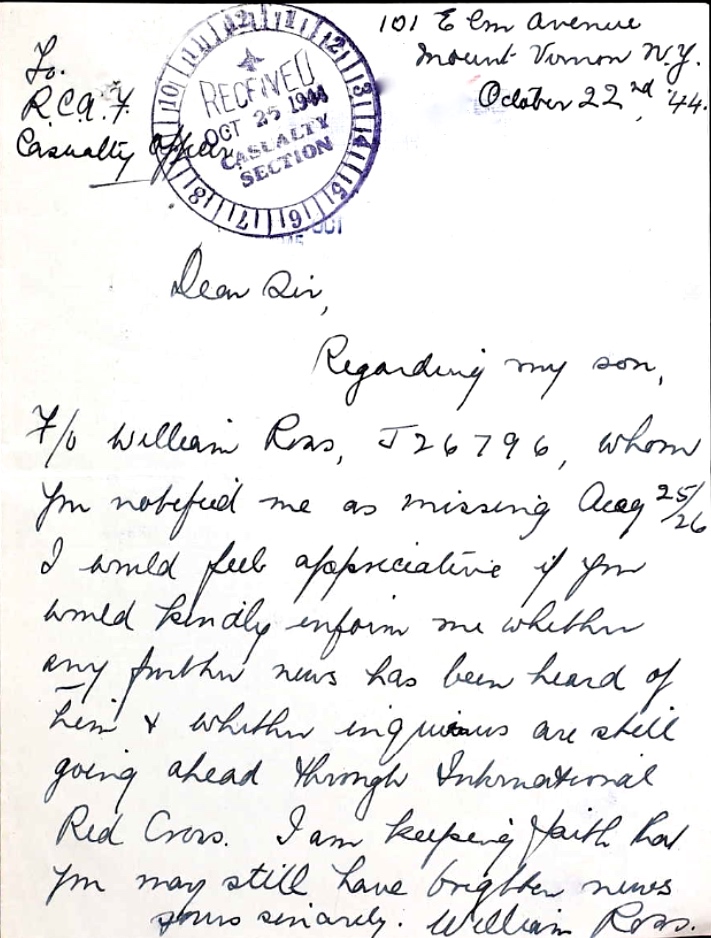 101 Elm Avenue
Mount Vernon N.Y.
October 22nd, '44.
To.
R.C.A.F.
Casualty Officer
12 1 2 3 4 5 6 7 8 10 11
RECEIVED
OCT 25 1944
CASUALTY
SECTION
OCT
Dear Sir,
Regarding my son,
F/O William Ross, J26796, whom
you notified me as missing Aug 25/26
I would feel appreciative if you
would kindly inform me whether
any further news has been heard of
him & whether inquiries are still
going ahead through International
Red Cross. I am keeping faith that
you may still have brighter news
yours sincerely. William Ross.